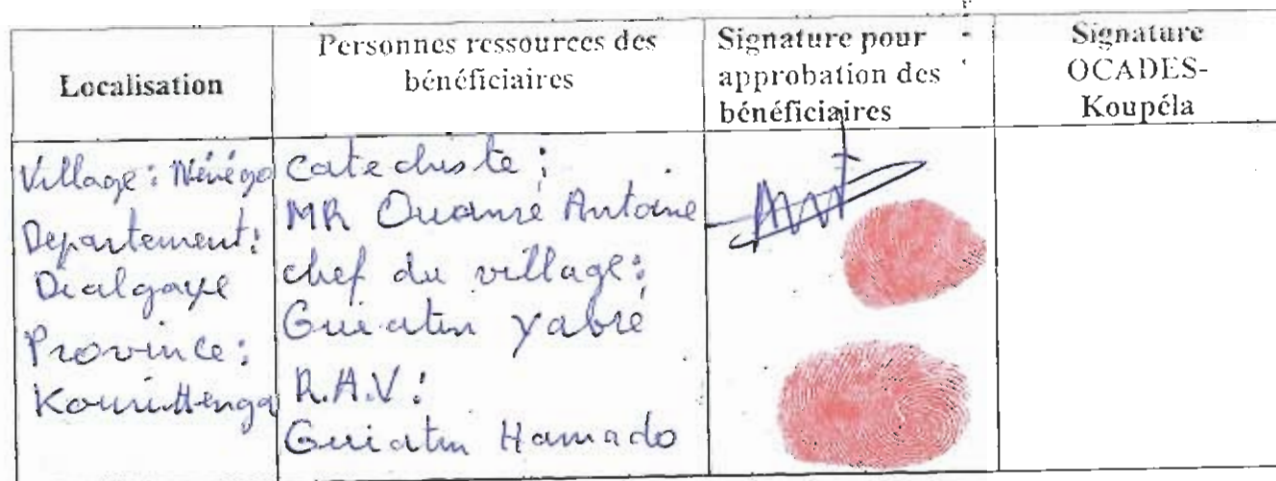 Localisation
Personnes ressources des
bénéficiaires
Signature pour
approbation des
bénéficiaires
Signature
OCADES-
Koupéla
Village : Nénégo
Departement :
Dialgaye
Province :
Kourittenga
Catechiste :
MR Ouamré Antoine
chef du village :
Guiatin Yabré
R.A.V :
Guiatin Hamado